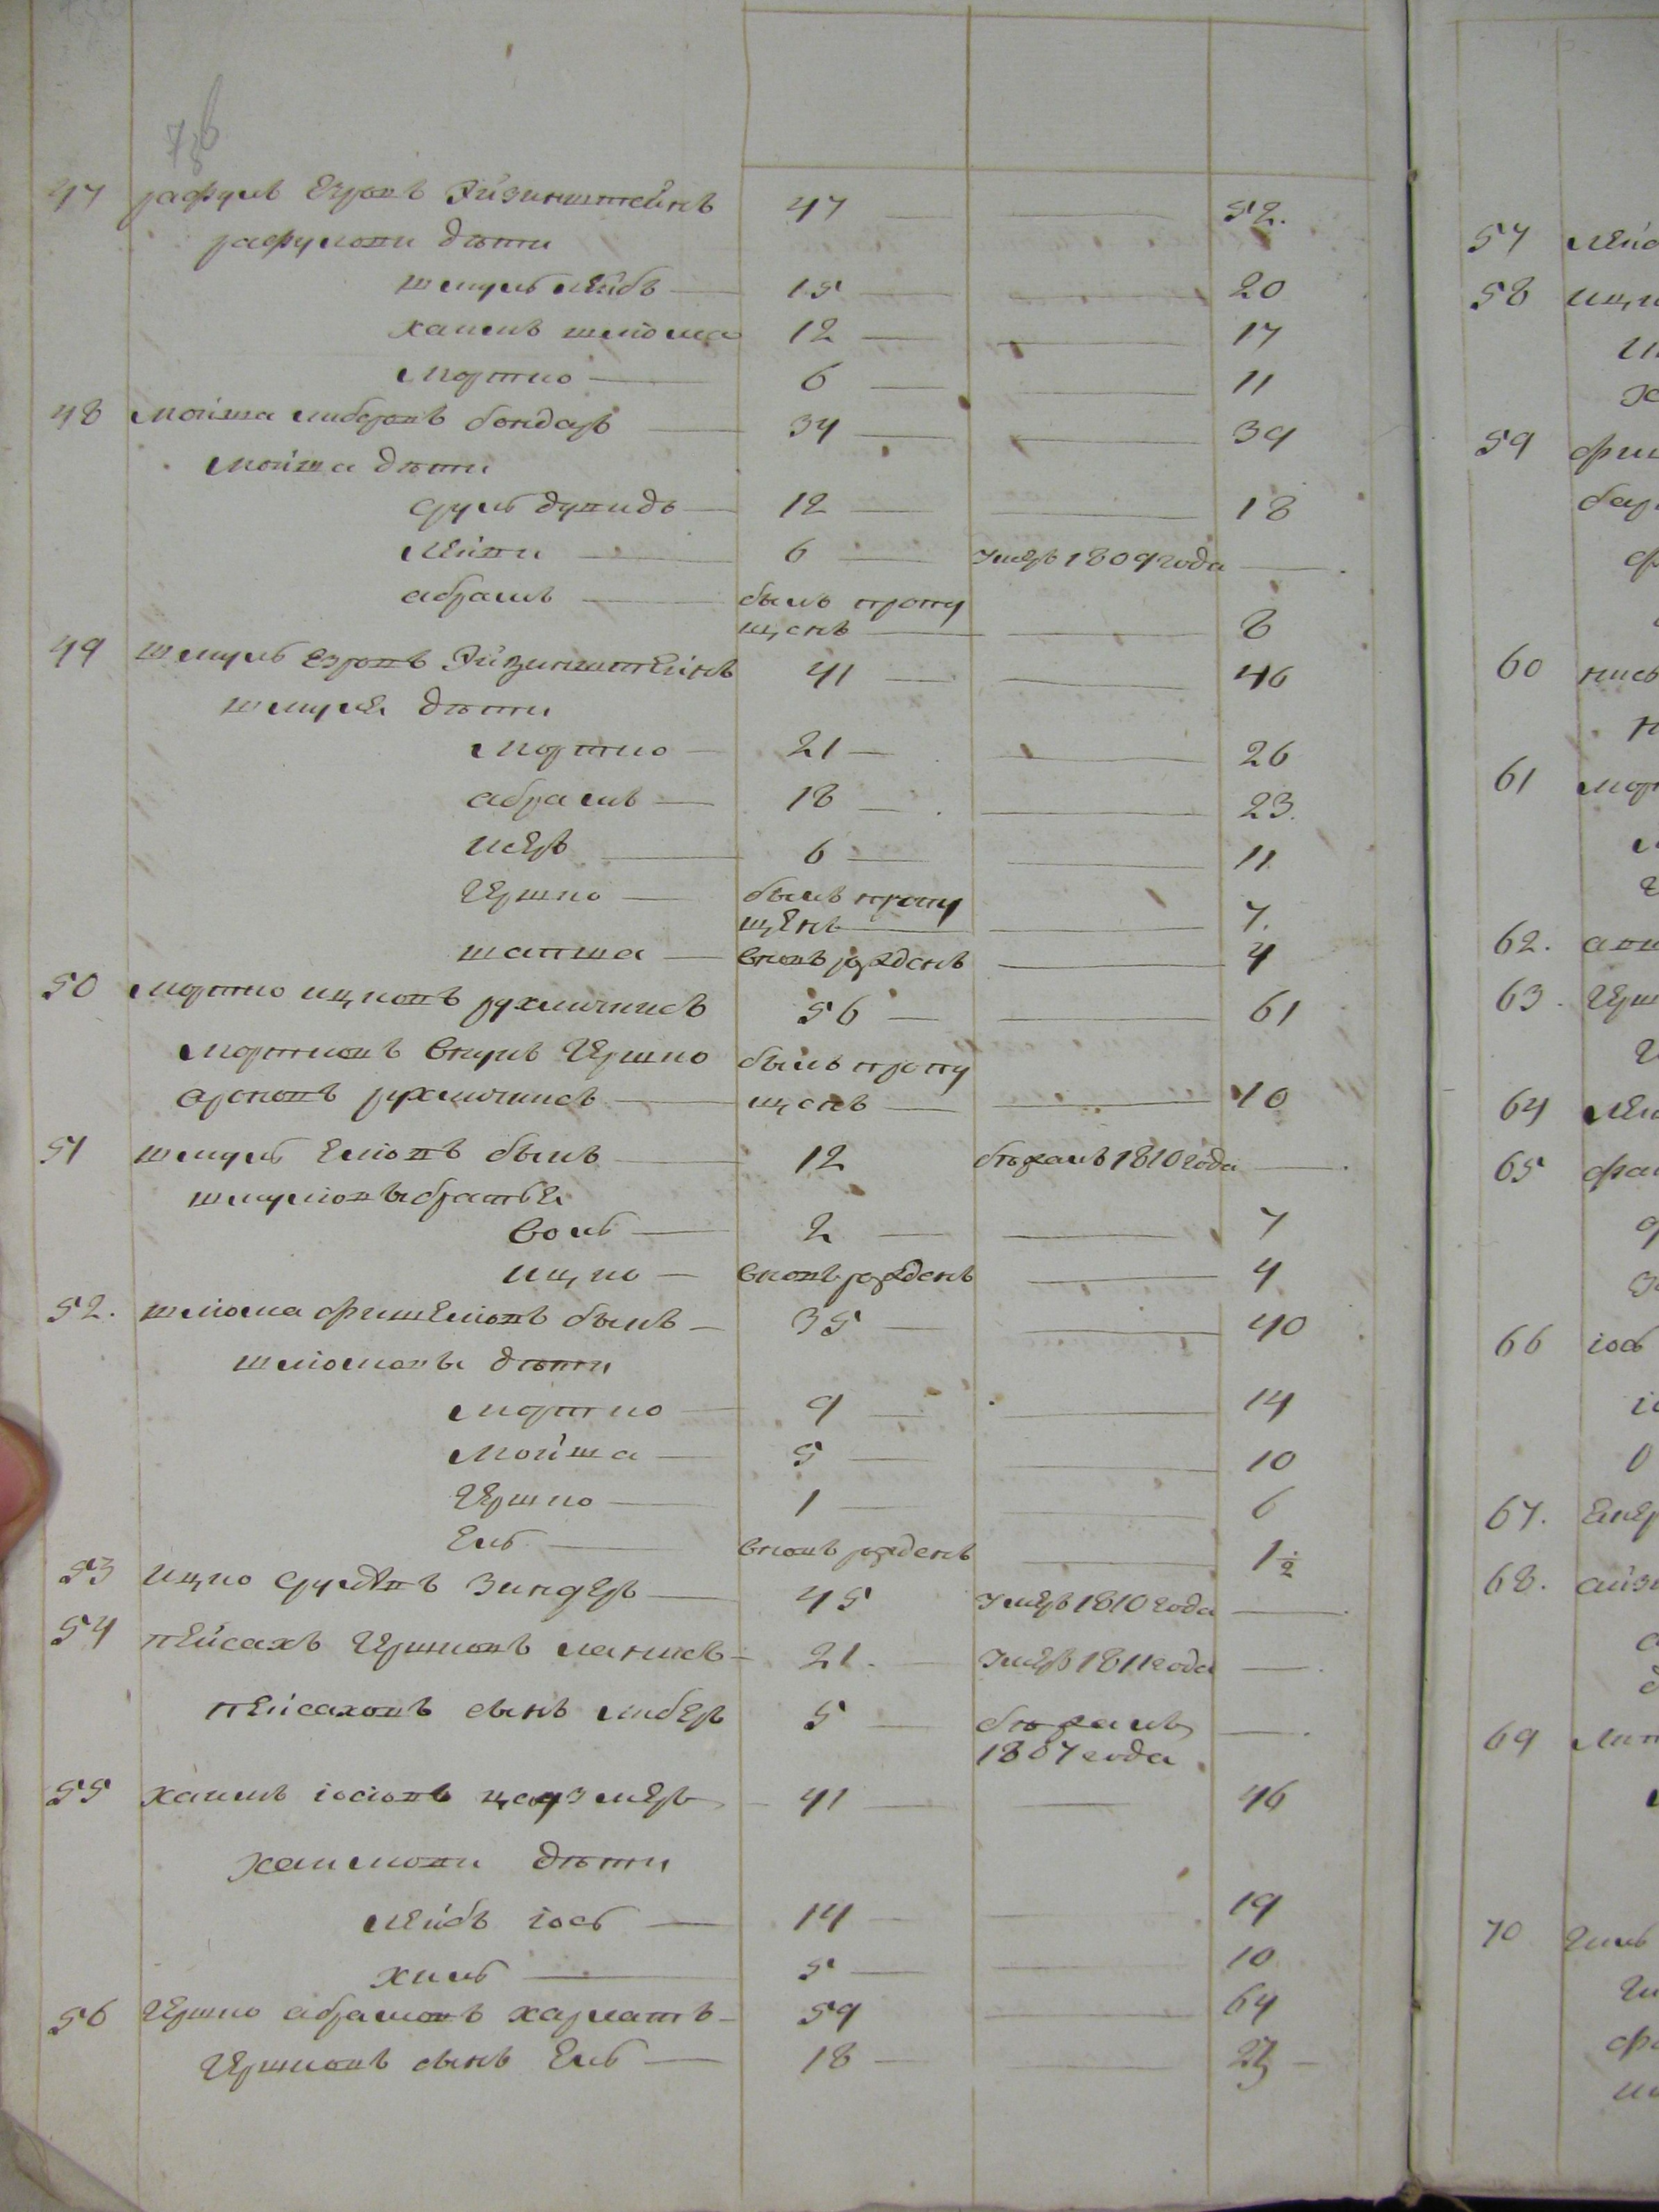 47 рафулъ Езровъ Эйзинштейнъ 47 52.
рафулови дѣти
шмуль лейбъ 15 20
хаимъ шліома 12 17
мортко 6 11
48 мойша либеровъ бондаръ 34 39
мойша дѣти
сруль дувидъ 12 18
лейви 6 умеръ 1809 года
абрамъ былъ пропу
щенъ 8
49 шмуль Езровъ Эйзинштейнъ 41 46
шмуля дѣти
мортко 21 26
абрамъ 18 23.
исеръ 6 11
Гершко былъ пропу
щенъ 7.
шапша вновъ рожденъ 4
50 мортко ицковъ 56 61
мортковъ внукъ Гершко былъ пропу
ароновъ щенъ 10
51 шмуль Еліовъ былъ 12 бѣжалъ 1810 года
шмуліовы братья
воль 2 7
ицко вновъ рожденъ 4
52. шліома фишеліовъ былъ 35 40
шліомовы дѣти
мортко 9 14
мойша 5 10
Гершко 1 6
Ель вновъ рожденъ 1½
53 ицко срулѣвъ Зингеръ 45 умеръ 1810 года
54 пейсахъ Гершковъ 21. умеръ 1811 года
пейсаховъ сынъ либеръ 5 бѣжалъ
1807 года
55 хаимъ іосіовъ 41 46
хаимови дѣти
лейбъ іось 14 19
хиль 5 10
56 Гершко абрамовъ харматъ 59 64
Гершковъ сынъ Ель 18 23
57
58
59
60
61
62.
63.
64
65
66 іось
67.
68.
69
70